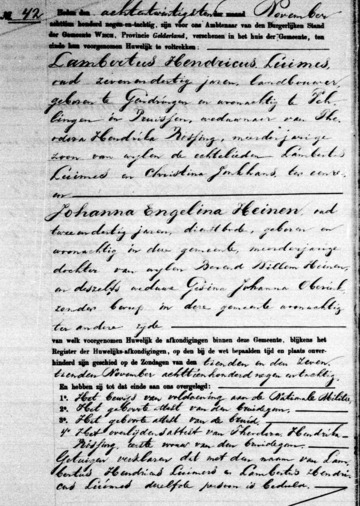 No 42
Heden den achtentwintigsten der maand November
achttien honderd negen en tachtig, zijn vóór ons Ambtenaar van den Burgerlijken Stand
der Gemeente WISCH, Provincie Gelderland, verschenen in het huis der Gemeente, ten
einde hun voorgenomen Huwelijk te voltrekken:
Lambertus Hendricus Lüimes
oud zevenendertig jaren, landbouwer,
geboren te Gendringen en woonachtig te
in Pruissen, weduwnaar van The-
odora Hendrika Rissing, meerderjarige
zoon van wijlen de echtelieden Lambertus
Lüimes en Christina Jonkhans, ter eenre
en
Johanna Engelina Heinen, oud
tweeendertig jaren, dienstbode, geboren en
woonachtig in deze gemeente, meerderjarige
dochter van wijlen Berend Willem Heinen,
en deszelfs weduwe Gesina Johanna
zonder beroep in deze gemeente woonachtig
ter andere zijde
van welk voorgenomen Huwelijk de afkondigingen binnen deze Gemeente, blijkens het
Register der Huwelijks-afkondigingen, op den bij de wet bepaalden tijd en plaats onver-
hinderd zijn geschied op de Zondagen van den tienden en den zeven-
tienden November achttienhonderd negen en tachtig.
En hebben zij tot dat einde aan ons overgelegd:
1o. Het bewijs van voldoening aan de Nationale Militie,
2o. Het geboorte attest van den bruidegom,
3o. Het geboorte attest van de bruid,
4o Het overlijdensattest van Theodora Hendrika
Rissing, eerste vrouw van den bruidegom.
Getuigen verklaren dat met den naam van Lam-
bertus Hendricus Luimers en Lambertus Hendri-
cus Lüimes dezelfde persoon is bedoeld.